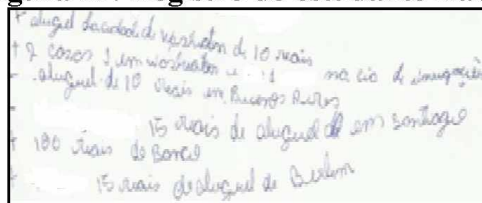 + aluguel da cidade de washington de 10 reais
+ 2 casas 1 em washington e 1 na cia de
- aluguel de 10 reais em Buenos Aires
- 15 reais de aluguel de em Santiago
+ 100 reais do Banco
- 15 reais de aluguel de Berlim